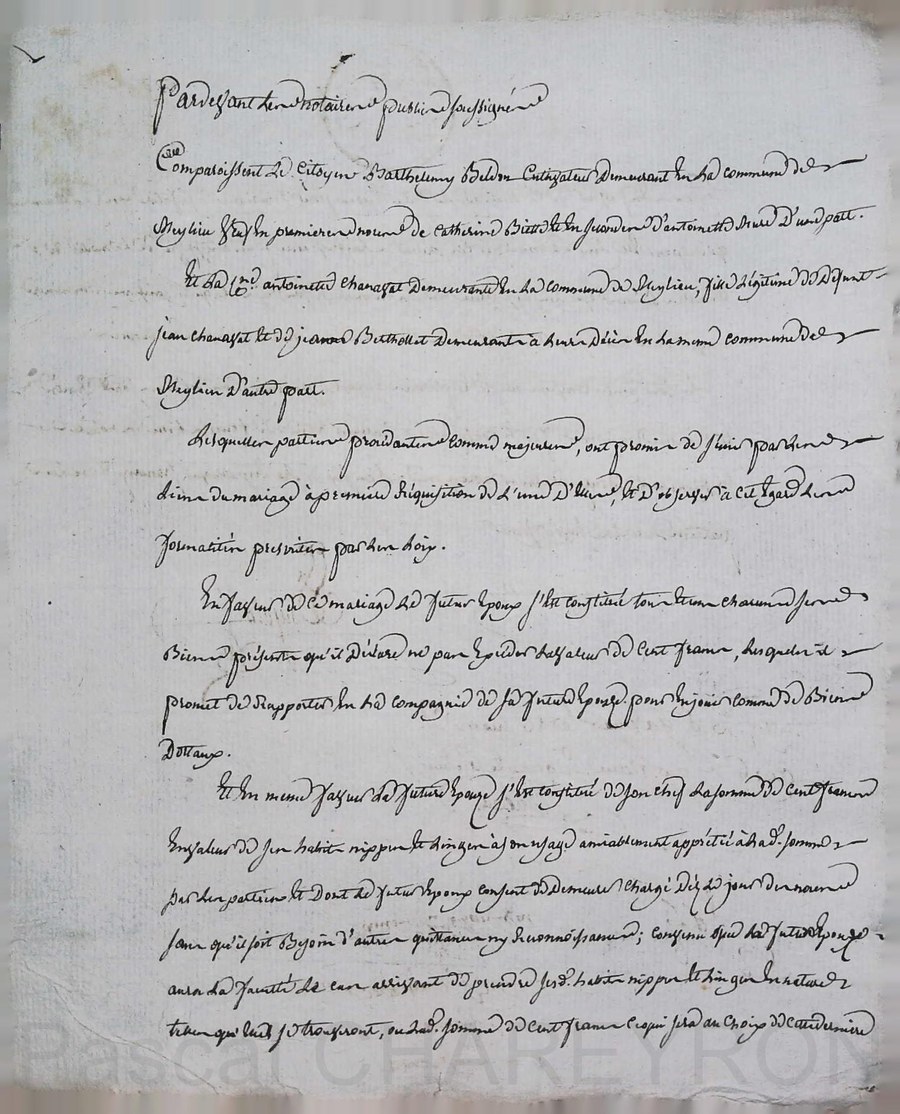 Pardevant les notaires publics soussignés
Comparoissent le citoyen Barthelemy Beldon Cultivateur Demeurant En la commune de
Meylieu veuf En premieres noces de Catherine Biette et En secondes d'antoinette Mure D'une part.
Et la Cne antoinette Chavassat Demeurante En la Commune de Meylieu, fille Légitime de Defunt
jean Chavassat et de jeanne Berthollet Demeurante a leur Décès En la meme commune de
Meylieu D'autre part.
Lesquelles parties procédantes comme majeures, ont promis de s'unir par les
liens du mariage à première Réquisition de L'une D'Elles, Et D'observer à cet Egard Les
formalités prescrites par les Loix.
En faveur de Ce mariage Le futur Epoux s'Est constitué tous Et un chacuns ses
Biens présents qu'il Déclare ne pas Excéder La valeur de Cent francs, Lesquels il
promet de Rapporter En La compagnie de sa future Epouze pour En jouir comme de Biens
Dottaux.
Et En meme faveur La future Epouze s'Est constitué de son chef La somme de Cent francs
En valeur de ses habits nippes Et Linges à son usage amiablement apprétié à Lad. somme
par Les parties Et Dont Le futur Epoux consent de Demeurer Chargé Dès Le jour des noces
sans qu'il soit Besoin d'autres quittances ny Reconnoissances; convenu que La future Epouze
aura La faculté Le cas arrivant de prendre sesd. habits nippes Et Linges En nature
tels qu'ils se trouveront, ou Lad. somme de Cent francs Ce qui sera au Choix de Cette dernière
Pascal CHAREYRON